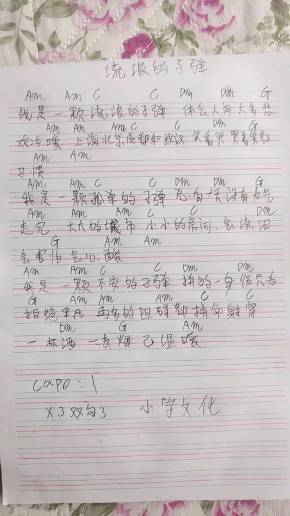 流浪的子弹
Am Am C C Dm Dm G
我是一颗流浪的子弹 体会人间大喜悲
Am Am Am C C Dm Dm G
欢冷暖 上海北京成都和武汉 笑着哭 哭着笑
Am Am
习惯
Am Am C C Dm Dm
我是一颗孤单的子弹 总有天没有勇气
G Am Am C C Dm Dm
走完 大大的城市 小小的房间 会流泪
G Am Am
会害怕会心酸
Am Am C C Dm Dm
我是一颗不安的子弹 掉的一身伤只为
G Am Am C C
拒绝平凡 再多的阻碍都拼命射穿
Dm G Am
一杯酒 一支烟 已温暖
Capo:1
小学文化